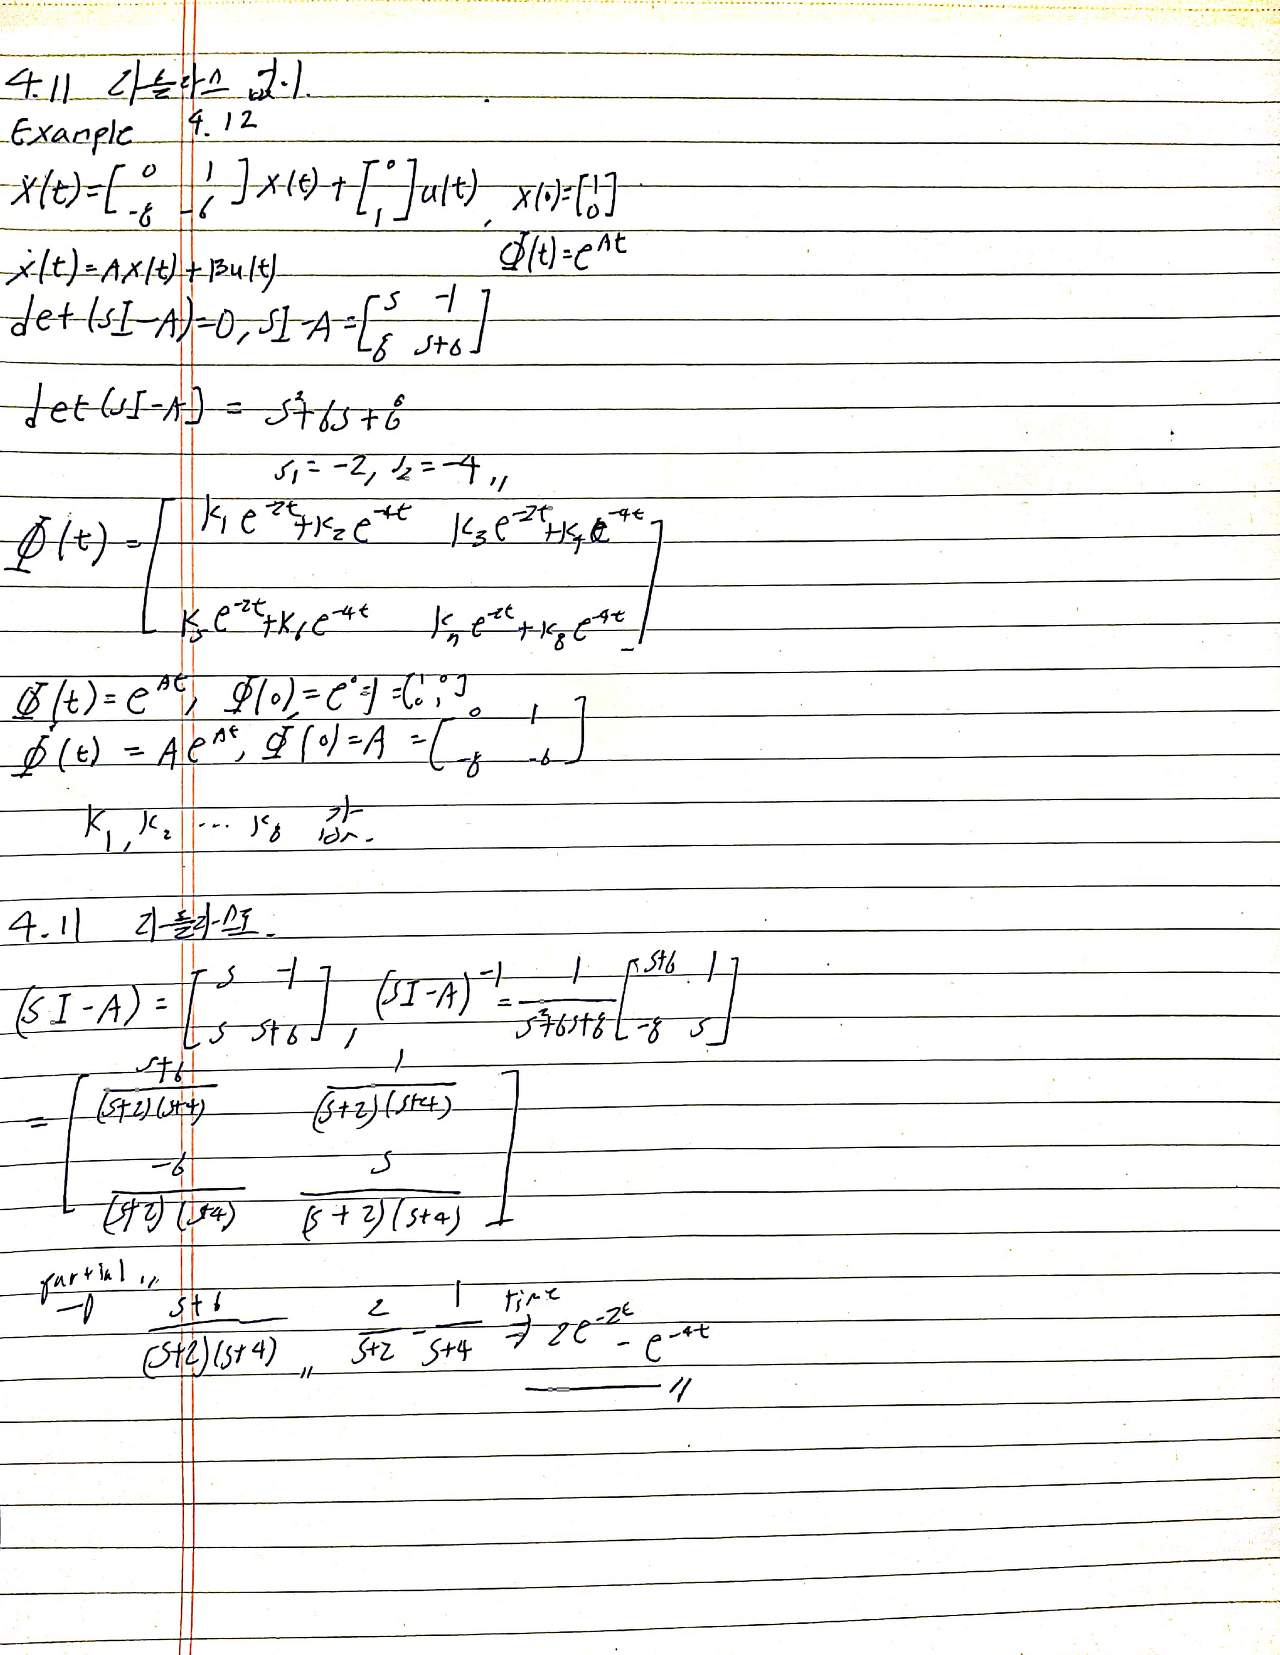 4.11 라플라스 없이.
Example 4.12
ẋ(t)=[0 1; -8 -6]x(t)+[0; 1]u(t), x(0)=[1; 0]
Φ(t)=e^{At}
ẋ(t)=Ax(t)+Bu(t)
det(sI-A)=0, sI-A=[s -1; 8 s+6]
det(sI-A) = s²+6s+8
s₁=-2, s₂=-4〃
Φ(t)=[K₁e^{-2t}+K₂e^{-4t} K₃e^{-2t}+K₄e^{-4t}; K₅e^{-2t}+K₆e^{-4t} K₇e^{-2t}+K₈e^{-4t}]
Φ(t)=e^{At}, Φ(0)=e⁰=I=[1 0; 0 1]
Φ̇(t)=Ae^{At}, Φ̇(0)=A=[0 1; -8 -6]
K₁, K₂ ... K₈
4.11 라플라스로.
(sI-A)=[s -1; s s+6], (sI-A)^{-1}=1/(s²+6s+8)[s+6 1; -8 s]
=[(s+6)/((s+2)(s+4)) 1/((s+2)(s+4)); -6/((s+2)(s+4)) s/((s+2)(s+4))]
partial〃
→ (s+6)/((s+2)(s+4))〃 2/(s+2) - 1/(s+4) time⇒ 2e^{-2t} - e^{-4t}〃